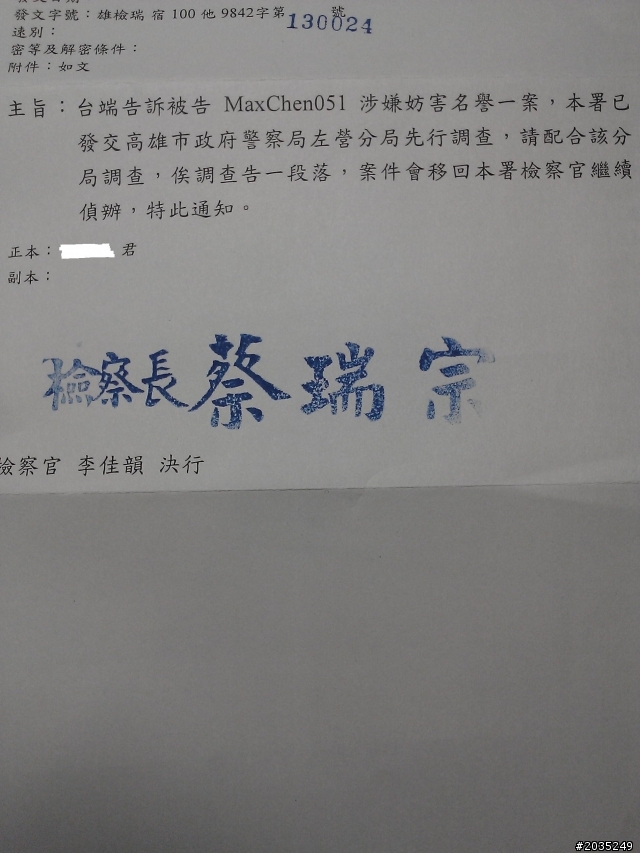 發文字號：雄檢瑞 宿 100 他 9842字第130024號
速別：
密等及解密條件：
附件：如文
主旨：台端告訴被告 MaxChen051 涉嫌妨害名譽一案，本署已
發交高雄市政府警察局左營分局先行調查，請配合該分
局調查，俟調查告一段落，案件會移回本署檢察官繼續
偵辦，特此通知。
正本： 君
副本：
檢察長 蔡瑞宗
檢察官 李佳韻 決行
#2035249